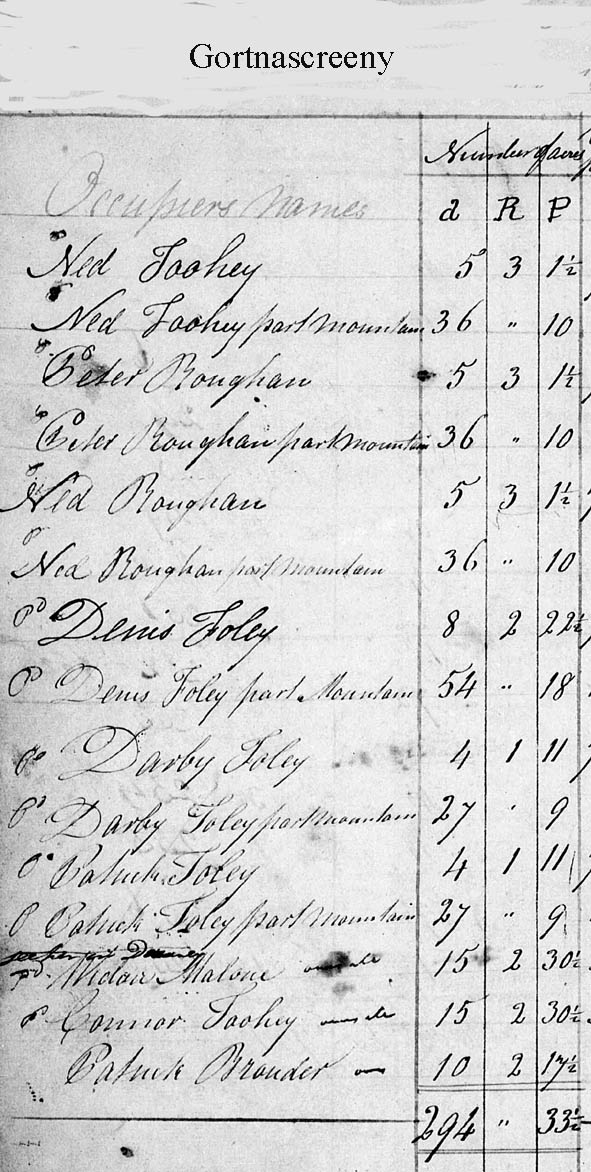 Gortnascreeny
Number of acres
Occupiers Names a R P
Ned Toohey 5 3 1½
Ned Toohey part mountain 36 " 10
Peter Roughan 5 3 1½
Peter Roughan part mountain 36 " 10
Ned Roughan 5 3 1½
Ned Roughan part mountain 36 " 10
Pd Denis Foley 8 2 22½
P Denis Foley part Mountain 54 " 18
Pd Darby Foley 4 1 11
Pd Darby Foley part mountain 27 " 9
P Patrick Foley 4 1 11
P Patrick Foley part Mountain 27 " 9
Pd Widow Malone 15 2 30½
P Connor Toohey 15 2 30½
Patrick Brouder 10 2 17½
294 " 33½